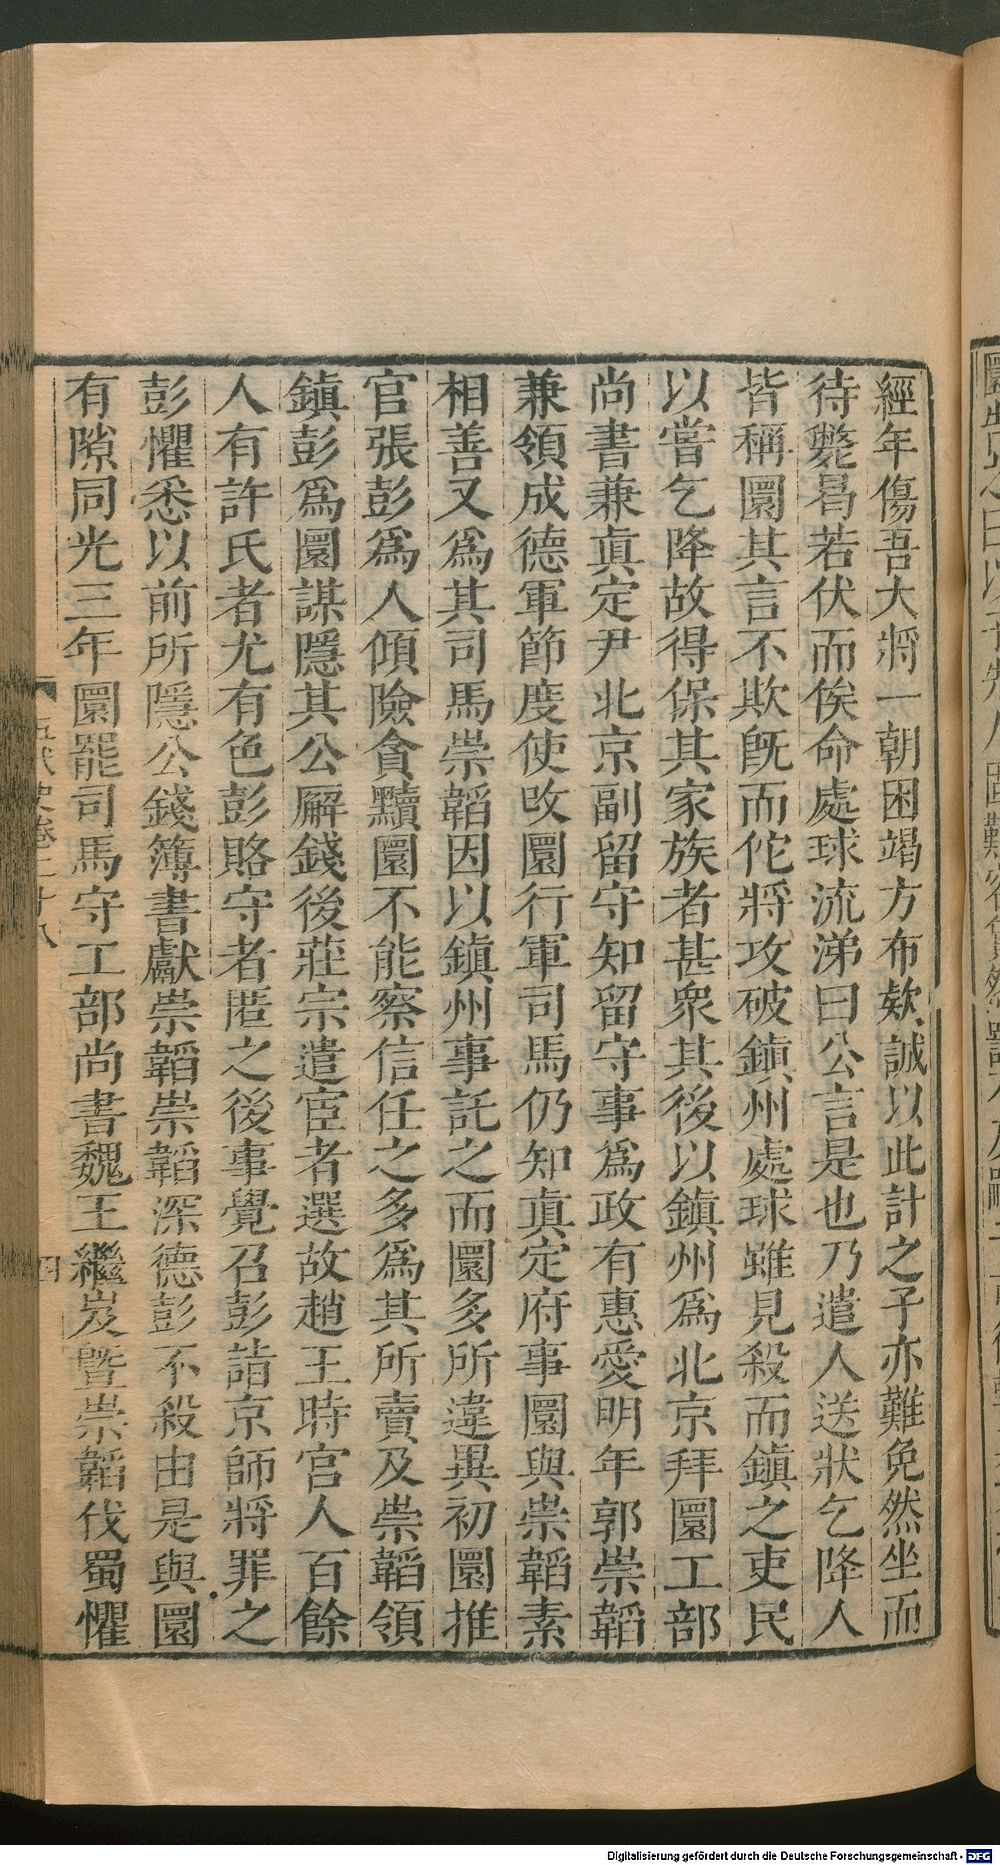 經年傷吾大將一朝困竭方布欵誠以此計之子亦難免然坐而
待斃曷若伏而俟命處球流涕曰公言是也乃遣人送狀乞降人
皆稱圜其言不欺旣而佗將攻破鎮州處球雖見殺而鎮之吏民
以嘗乞降故得保其家族者甚衆其後以鎮州爲北京拜圜工部
尚書兼眞定尹北京副留守知留守事爲政有惠愛明年郭崇韜
兼領成德軍節度使改圜行軍司馬仍知眞定府事圜與崇韜素
相善又爲其司馬崇韜因以鎮州事託之而圜多所違異初圜推
官張彭爲人傾險貪黷圜不能察信任之多爲其所賣及崇韜領
鎮彭爲圜謀隱其公廨錢後莊宗遣宦者選故趙王時宫人百餘
人有許氏者尤有色彭賂守者匿之後事覺召彭詣京師將罪之
彭懼悉以前所隱公錢簿書獻崇韜崇韜深德彭不殺由是與圜
有隙同光三年圜罷司馬守工部尚書魏王繼岌暨崇韜伐蜀懼
五代史卷二十八
四
Digitalisierung gefördert durch die Deutsche Forschungsgemeinschaft - DFG